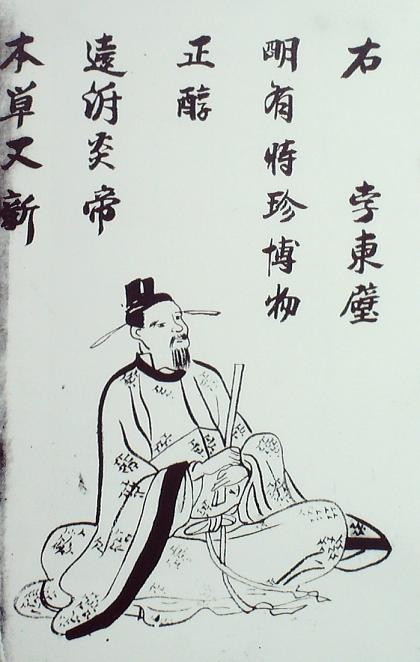 右 李東璧
明有時珍博物
正醇
遠泝炎帝
本草又新